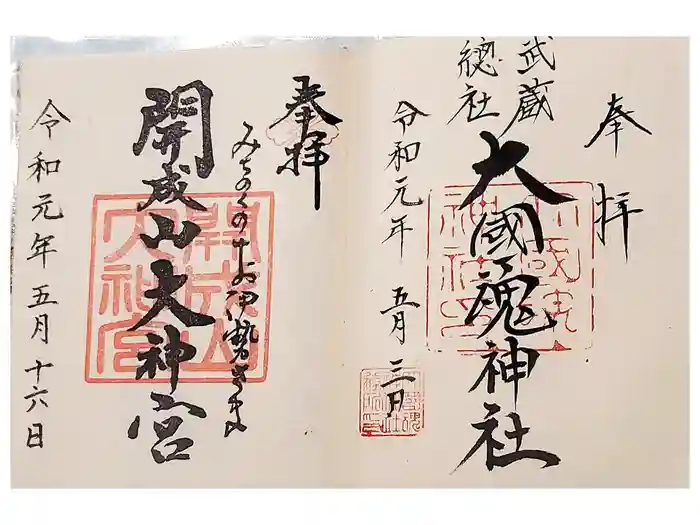 奉拝
武蔵
總社
大國魂神社
令和元年 五月三日
奉拝
みちのくのお伊勢さま
開成山大神宮
開成山
大神宮
令和元年五月十六日